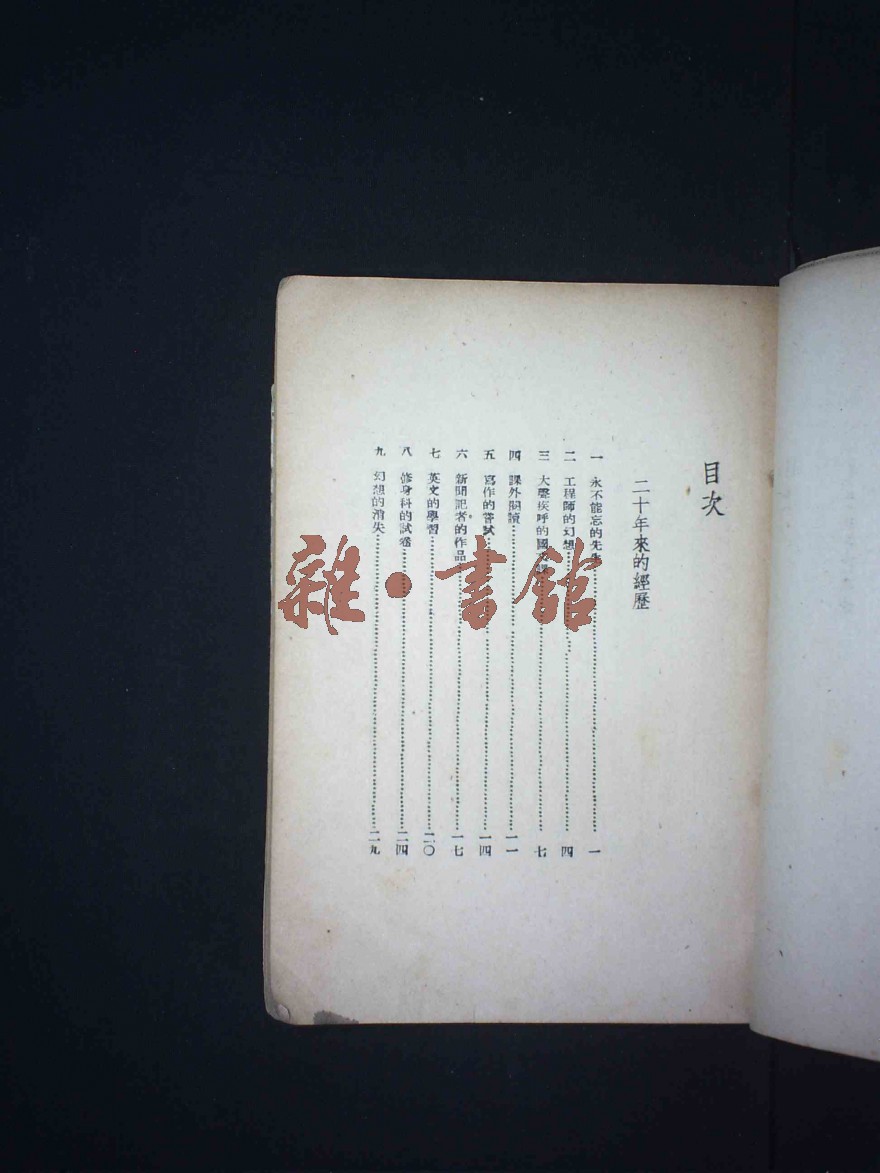 目次
二十年來的經歷
一 永不能忘的先生……一
二 工程師的幻想……四
三 大聲疾呼的國……七
四 課外閱讀……一一
五 寫作的嘗試……一四
六 新聞記者的作品……一七
七 英文的學習……二〇
八 修身科的試卷……二四
九 幻想的消失……二九
雜·書館